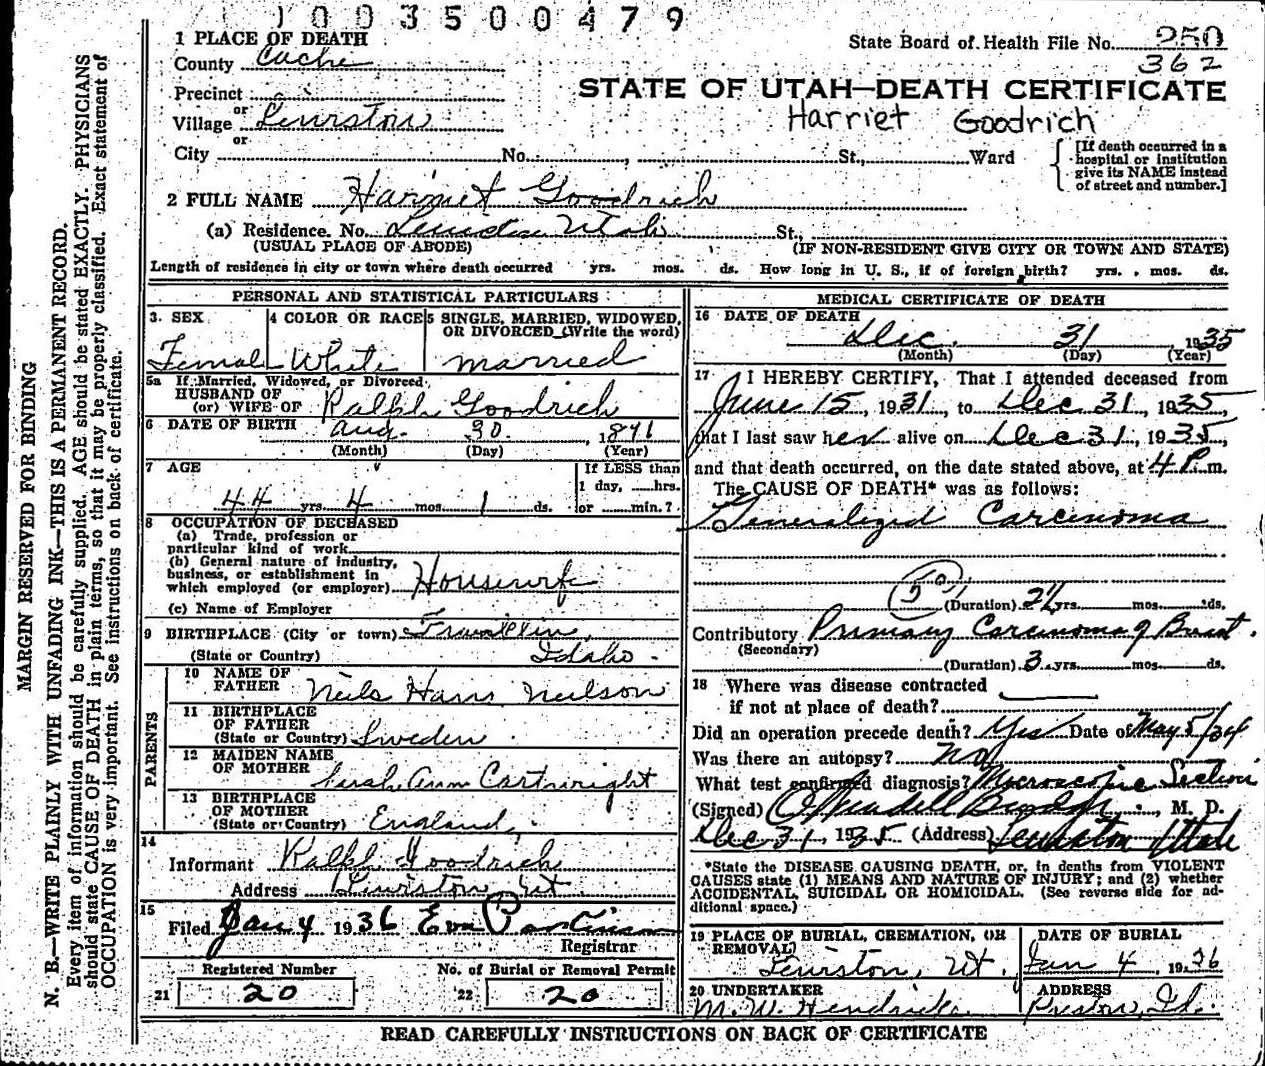 1003500479
1 PLACE OF DEATH
State Board of Health File No. 250
County Cache
362
STATE OF UTAH—DEATH CERTIFICATE
Precinct
or
Village Lewiston
Harriet Goodrich
or
City No. , St., Ward
[If death occurred in a
hospital or institution
give its NAME instead
of street and number.]
2 FULL NAME Harriet Goodrich
(a) Residence. No. Lewiston Utah St.,
(USUAL PLACE OF ABODE) (IF NON-RESIDENT GIVE CITY OR TOWN AND STATE)
Length of residence in city or town where death occurred yrs. mos. ds. How long in U. S., if of foreign birth? yrs. mos. ds.
PERSONAL AND STATISTICAL PARTICULARS
3. SEX 4 COLOR OR RACE 5 SINGLE, MARRIED, WIDOWED,
OR DIVORCED (Write the word)
Female White Married
5a If Married, Widowed, or Divorced
HUSBAND OF
(or) WIFE OF Ralph Goodrich
6 DATE OF BIRTH Aug. 30, 1891
(Month) (Day) (Year)
7 AGE If LESS than
1 day, hrs.
44 yrs. 4 mos. 1 ds. or min.?
8 OCCUPATION OF DECEASED
(a) Trade, profession or
particular kind of work
(b) General nature of industry,
business, or establishment in
which employed (or employer) Housewife
(c) Name of Employer
9 BIRTHPLACE (City or town) Franklin,
(State or Country) Idaho.
PARENTS
10 NAME OF
FATHER Neils Hans Neilson
11 BIRTHPLACE
OF FATHER
(State or Country) Sweden
12 MAIDEN NAME
OF MOTHER Ann Cartwright
13 BIRTHPLACE
OF MOTHER
(State or Country) England
14
Informant Ralph Goodrich
Address Lewiston, Ut.
15
Filed Jan 4 1936 Eva
Registrar
Registered Number No. of Burial or Removal Permit
21 20 22 20
MEDICAL CERTIFICATE OF DEATH
16 DATE OF DEATH
Dec. 31, 1935
(Month) (Day) (Year)
17 I HEREBY CERTIFY, That I attended deceased from
June 15, 1931, to Dec 31, 1935,
that I last saw her alive on Dec 31, 1935,
and that death occurred, on the date stated above, at 4 P. m.
The CAUSE OF DEATH* was as follows:
Generalized Carcinoma
50
(Duration) yrs. mos. ds.
Contributory Primary Carcinoma of Breast.
(Secondary)
(Duration) 3 yrs. mos. ds.
18 Where was disease contracted
if not at place of death?
Did an operation precede death? Yes Date of May 5/34
Was there an autopsy? No
What test confirmed diagnosis? Macroscopic Section
(Signed) , M. D.
Dec 31, 1935 (Address) Lewiston Utah
*State the DISEASE CAUSING DEATH, or, in deaths from VIOLENT
CAUSES state (1) MEANS AND NATURE OF INJURY; and (2) whether
ACCIDENTAL, SUICIDAL OR HOMICIDAL. (See reverse side for ad-
ditional space.)
19 PLACE OF BURIAL, CREMATION, OR
REMOVAL DATE OF BURIAL
Lewiston, Ut. Jan 4, 1936
20 UNDERTAKER ADDRESS
M. W. Hendricks Preston, Id.
READ CAREFULLY INSTRUCTIONS ON BACK OF CERTIFICATE
MARGIN RESERVED FOR BINDING
N. B.—WRITE PLAINLY WITH UNFADING INK—THIS IS A PERMANENT RECORD.
Every item of information should be carefully supplied. AGE should be stated EXACTLY. PHYSICIANS
should state CAUSE OF DEATH in plain terms, so that it may be properly classified. Exact statement of
OCCUPATION is very important. See instructions on back of certificate.